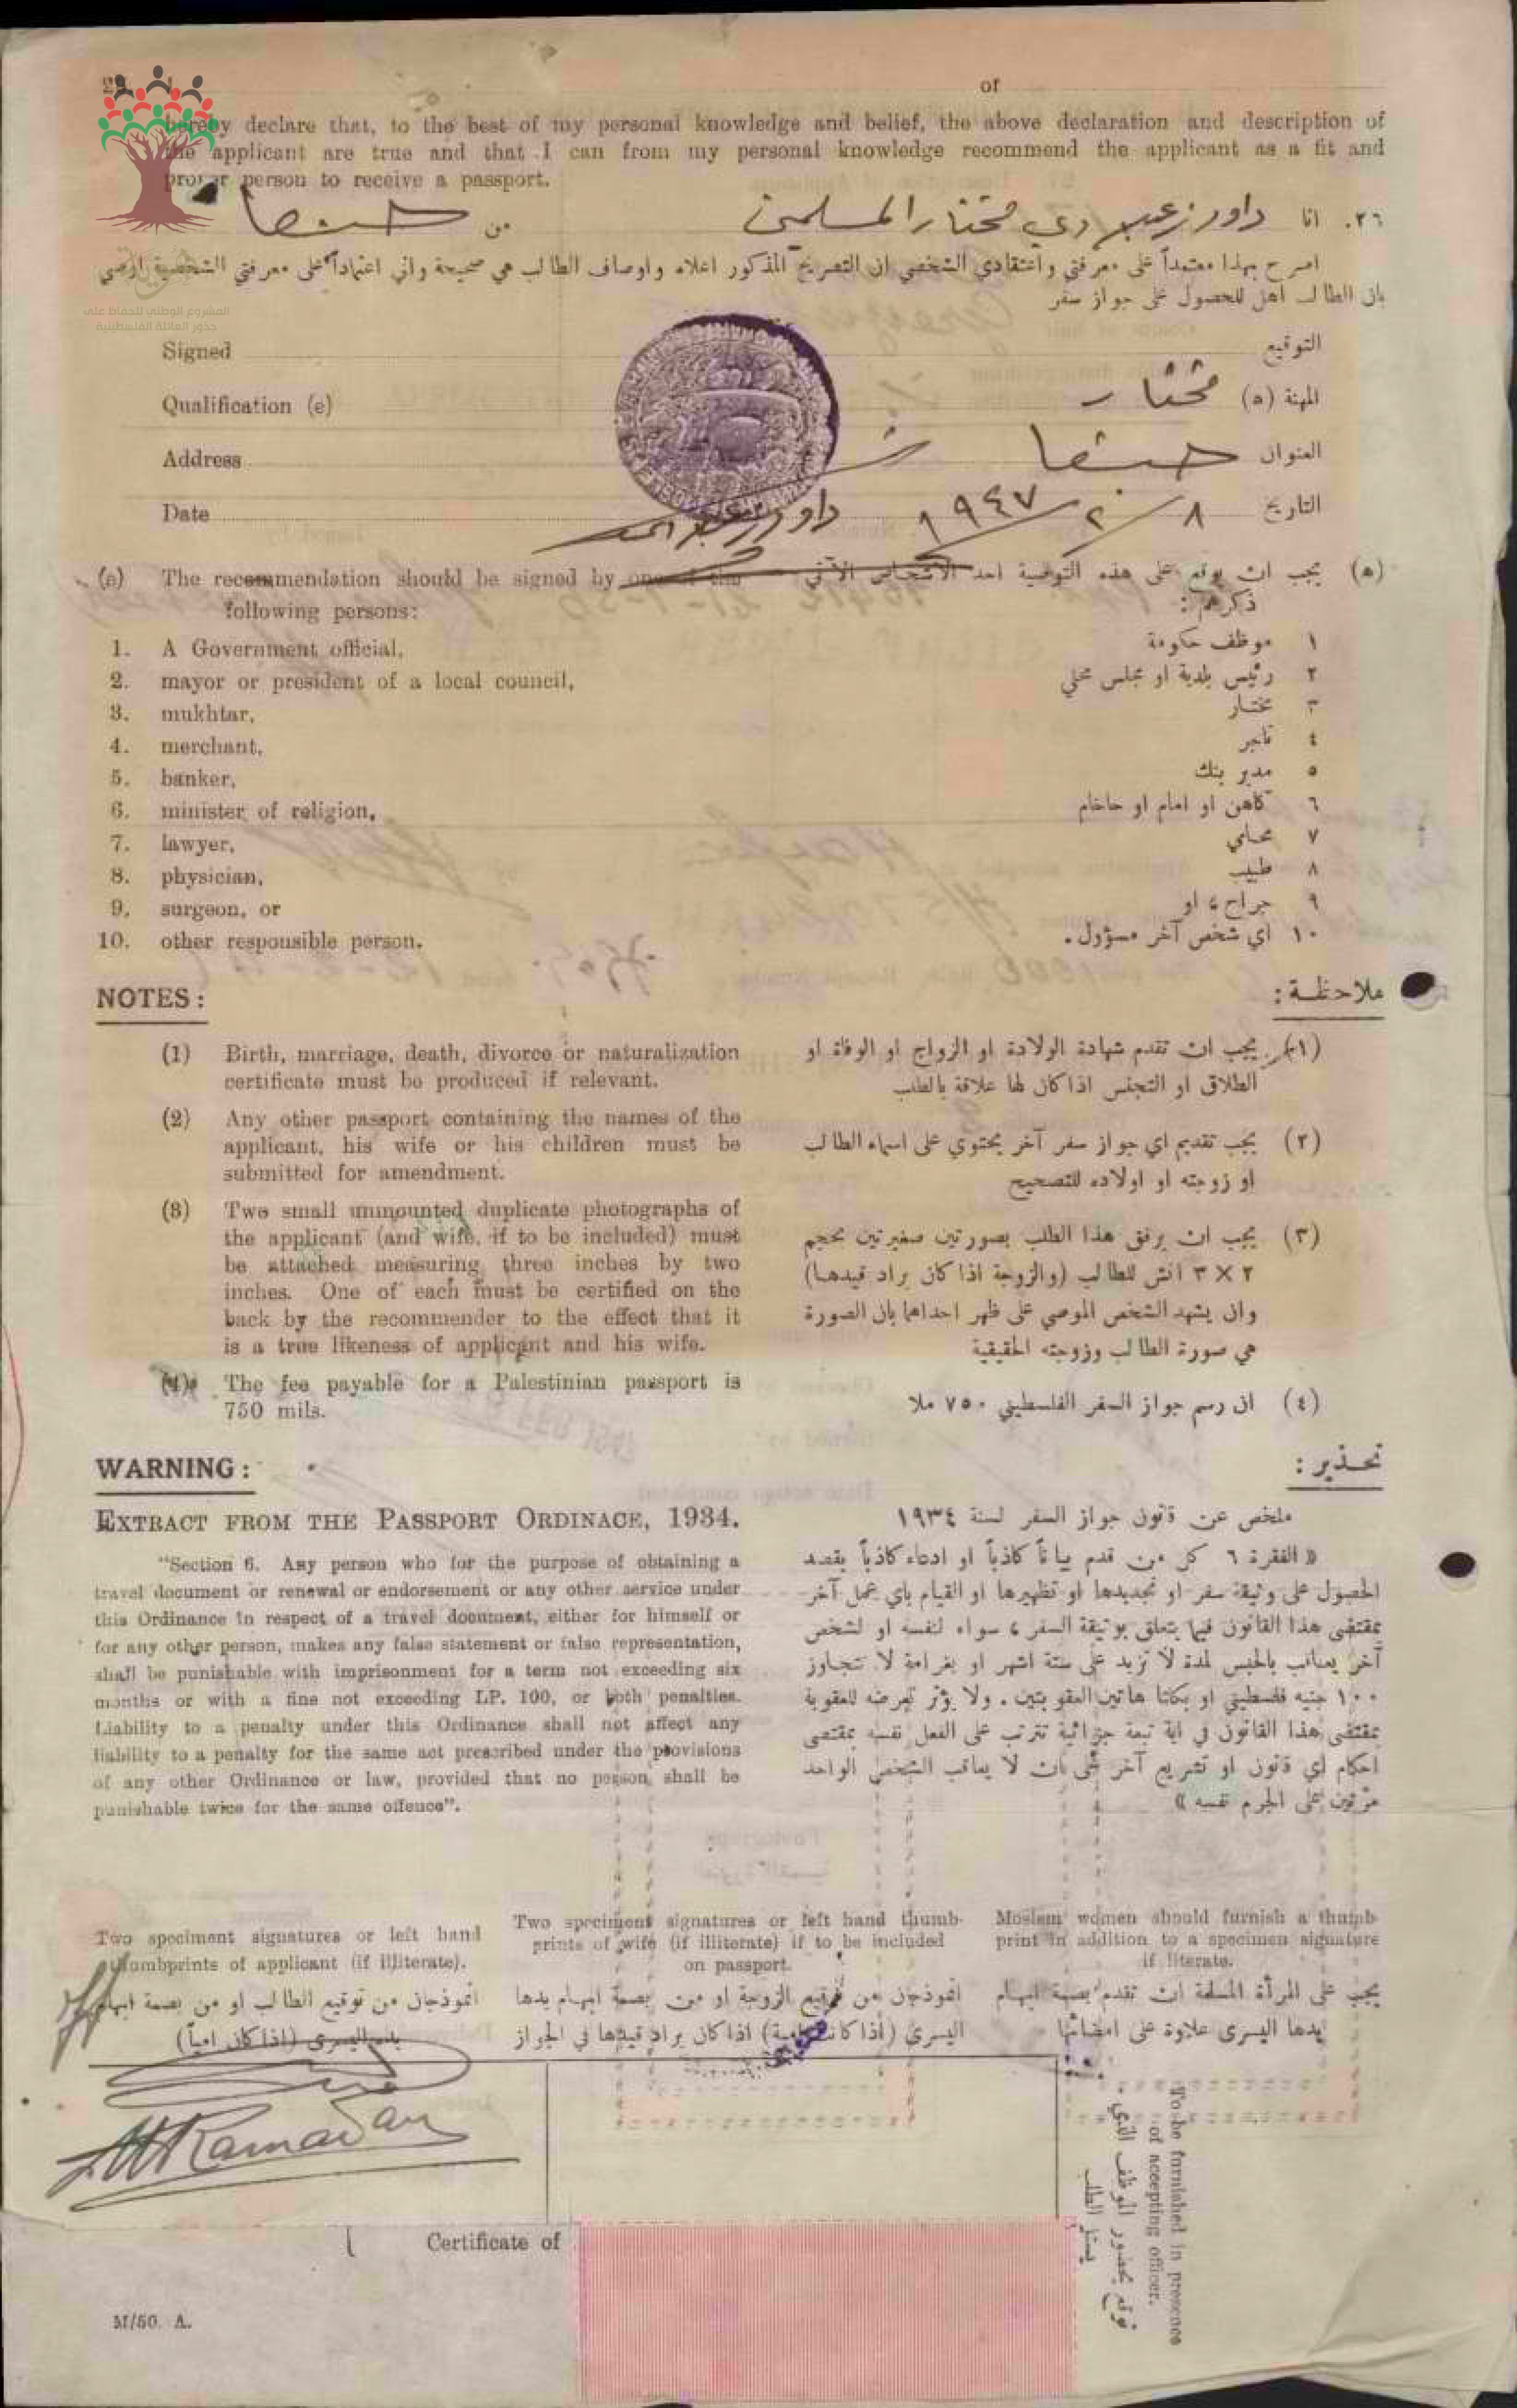 of
hereby declare that, to the best of my personal knowledge and belief, the above declaration and description of
the applicant are true and that I can from my personal knowledge recommend the applicant as a fit and
proper person to receive a passport.
٢٦. انا داود مختار المسلمين من حيفا
اصرح بهذا معتمداً على معرفتي واعتقادي الشخصي ان التصريح المذكور اعلاه واوصاف الطالب هي صحيحة واني اعتماداً على معرفتي الشخصية اوصي
بان الطالب اهل للحصول على جواز سفر
المشروع الوطني للحفاظ على
جذور العائلة الفلسطينية
Signed التوقيع
Qualification (e) مختار المهنة (ه)
Address حيفا العنوان
Date ٨/٢/١٩٤٧ التاريخ
داود
(e) The recommendation should be signed by one of the
following persons:
1. A Government official,
2. mayor or president of a local council,
3. mukhtar,
4. merchant,
5. banker,
6. minister of religion,
7. lawyer,
8. physician,
9. surgeon, or
10. other responsible person.
(ه) يجب ان يوقع على هذه التوصية احد الاشخاص الآتي
ذكرهم :
١ موظف حكومة
٢ رئيس بلدية او مجلس محلي
٣ مختار
٤ تاجر
٥ مدير بنك
٦ كاهن او امام او حاخام
٧ محامي
٨ طبيب
٩ جراح ، او
١٠ اي شخص آخر مسؤول .
NOTES :
(1) Birth, marriage, death, divorce or naturalization
certificate must be produced if relevant.
(2) Any other passport containing the names of the
applicant, his wife or his children must be
submitted for amendment.
(3) Two small unmounted duplicate photographs of
the applicant (and wife, if to be included) must
be attached measuring three inches by two
inches. One of each must be certified on the
back by the recommender to the effect that it
is a true likeness of applicant and his wife.
(4) The fee payable for a Palestinian passport is
750 mils.
ملاحظة :
(١) يجب ان تقدم شهادة الولادة او الزواج او الوفاة او
الطلاق او التجنس اذا كان لها علاقة بالطلب
(٢) يجب تقديم اي جواز سفر آخر يحتوي على اسماء الطالب
او زوجته او اولاده للتصحيح
(٣) يجب ان يرفق هذا الطلب بصورتين صغيرتين بحجم
٢ × ٣ انش للطالب (والزوجة اذا كان يراد قيدها)
وان يشهد الشخص الموصي على ظهر احداها بان الصورة
هي صورة الطالب وزوجته الحقيقية
(٤) ان رسم جواز السفر الفلسطيني ٧٥٠ ملا
WARNING :
EXTRACT FROM THE PASSPORT ORDINACE, 1934.
"Section 6. Any person who for the purpose of obtaining a
travel document or renewal or endorsement or any other service under
this Ordinance in respect of a travel document, either for himself or
for any other person, makes any false statement or false representation,
shall be punishable with imprisonment for a term not exceeding six
months or with a fine not exceeding LP. 100, or both penalties.
Liability to a penalty under this Ordinance shall not affect any
liability to a penalty for the same act prescribed under the provisions
of any other Ordinance or law, provided that no person shall be
punishable twice for the same offence".
تحذير :
ملخص عن قانون جواز السفر لسنة ١٩٣٤
« الفقرة ٦ كل من قدم بياناً كاذباً او ادعاء كاذباً بقصد
الحصول على وثيقة سفر او تجديدها او تظهيرها او القيام باي عمل آخر
بمقتضى هذا القانون فيما يتعلق بوثيقة السفر ، سواء لنفسه او لشخص
آخر يعاقب بالحبس لمدة لا تزيد على ستة اشهر او بغرامة لا تتجاوز
١٠٠ جنيه فلسطيني او بكلتا هاتين العقوبتين . ولا يؤثر تعرضه للعقوبة
بمقتضى هذا القانون في اية تبعة جزائية تترتب على الفعل نفسه بمقتضى
احكام اي قانون او تشريع آخر على ان لا يعاقب الشخص الواحد
مرتين على الجرم نفسه »
Two speciment signatures or left hand
thumbprints of applicant (if illiterate).
انموذجان من توقيع الطالب او من بصمة ابهام
يده اليسرى (اذا كان امياً)
Two speciment signatures or left hand thumb-
prints of wife (if illiterate) if to be included
on passport.
انموذجان من توقيع الزوجة او من بصمة ابهام يدها
اليسرى (اذا كانت امية) اذا كان يراد قيدها في الجواز
Moslem women should furnish a thumb-
print in addition to a specimen signature
if literate.
يجب على المرأة المسلمة ان تقدم بصمة ابهام
يدها اليسرى علاوة على امضائها
Ramadan
To be furnished in presence
of accepting officer.
توقع بحضور الموظف الذي
يستلم الطلب
Certificate of
M/50. A.